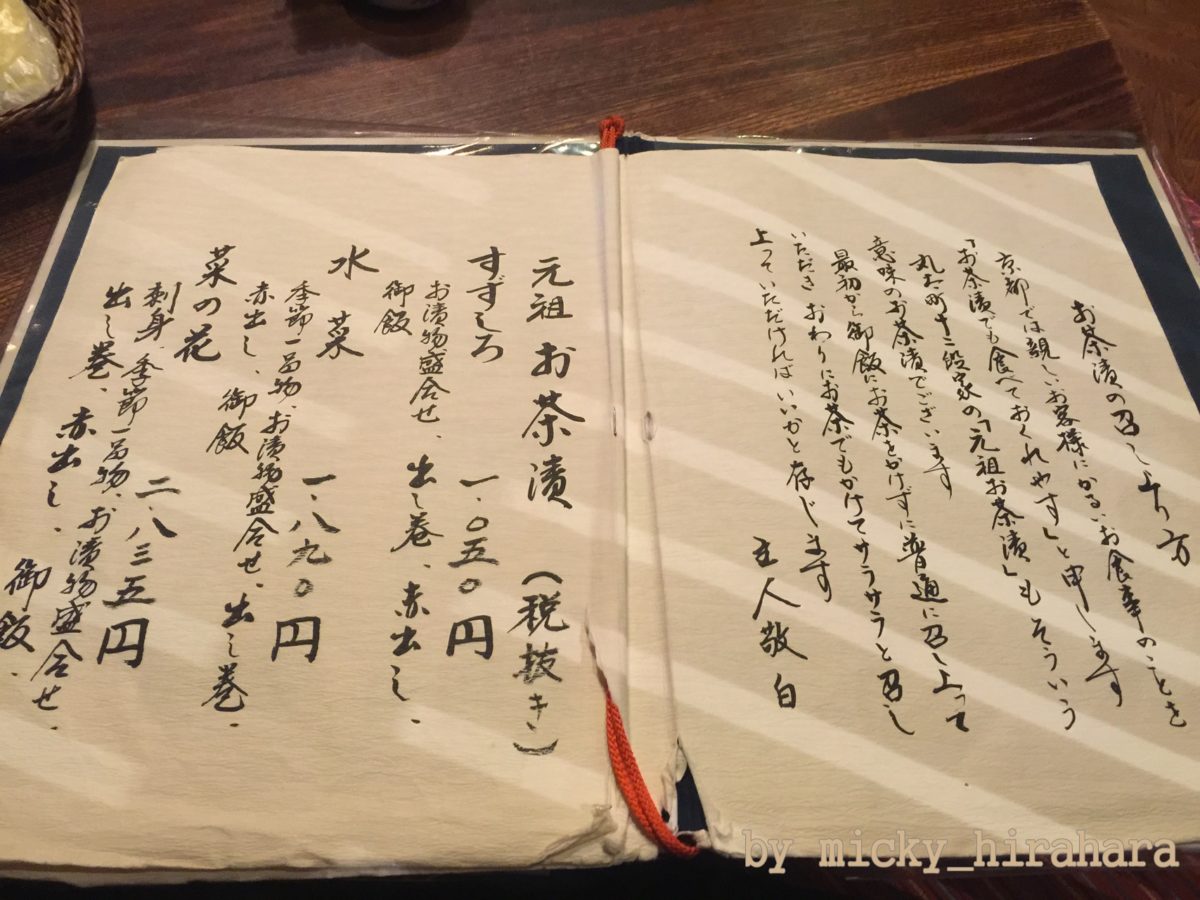 お茶漬の召し上り方
京都では親しいお客様にかるいお食事のことを
「お茶漬でも食べておくれやす」と申します
丸太町十二段家の「元祖お茶漬」もそういう
意味のお茶漬でございます
最初から御飯にお茶をかけずに普通に召し上って
いただき おわりにお茶でもかけてサラサラと召し
上っていただければいいかと存じます
主人敬白
元祖お茶漬（税抜き）
すずしろ 一、〇五〇円
お漬物盛合せ、出し巻、赤出し、
御飯
水菜 一、八九〇円
季節一品物、お漬物盛合せ、出し巻、
赤出し、御飯
菜の花 二、八三五円
刺身、季節一品物、お漬物盛合せ、
出し巻、赤出し、御飯、
by micky_hirahara